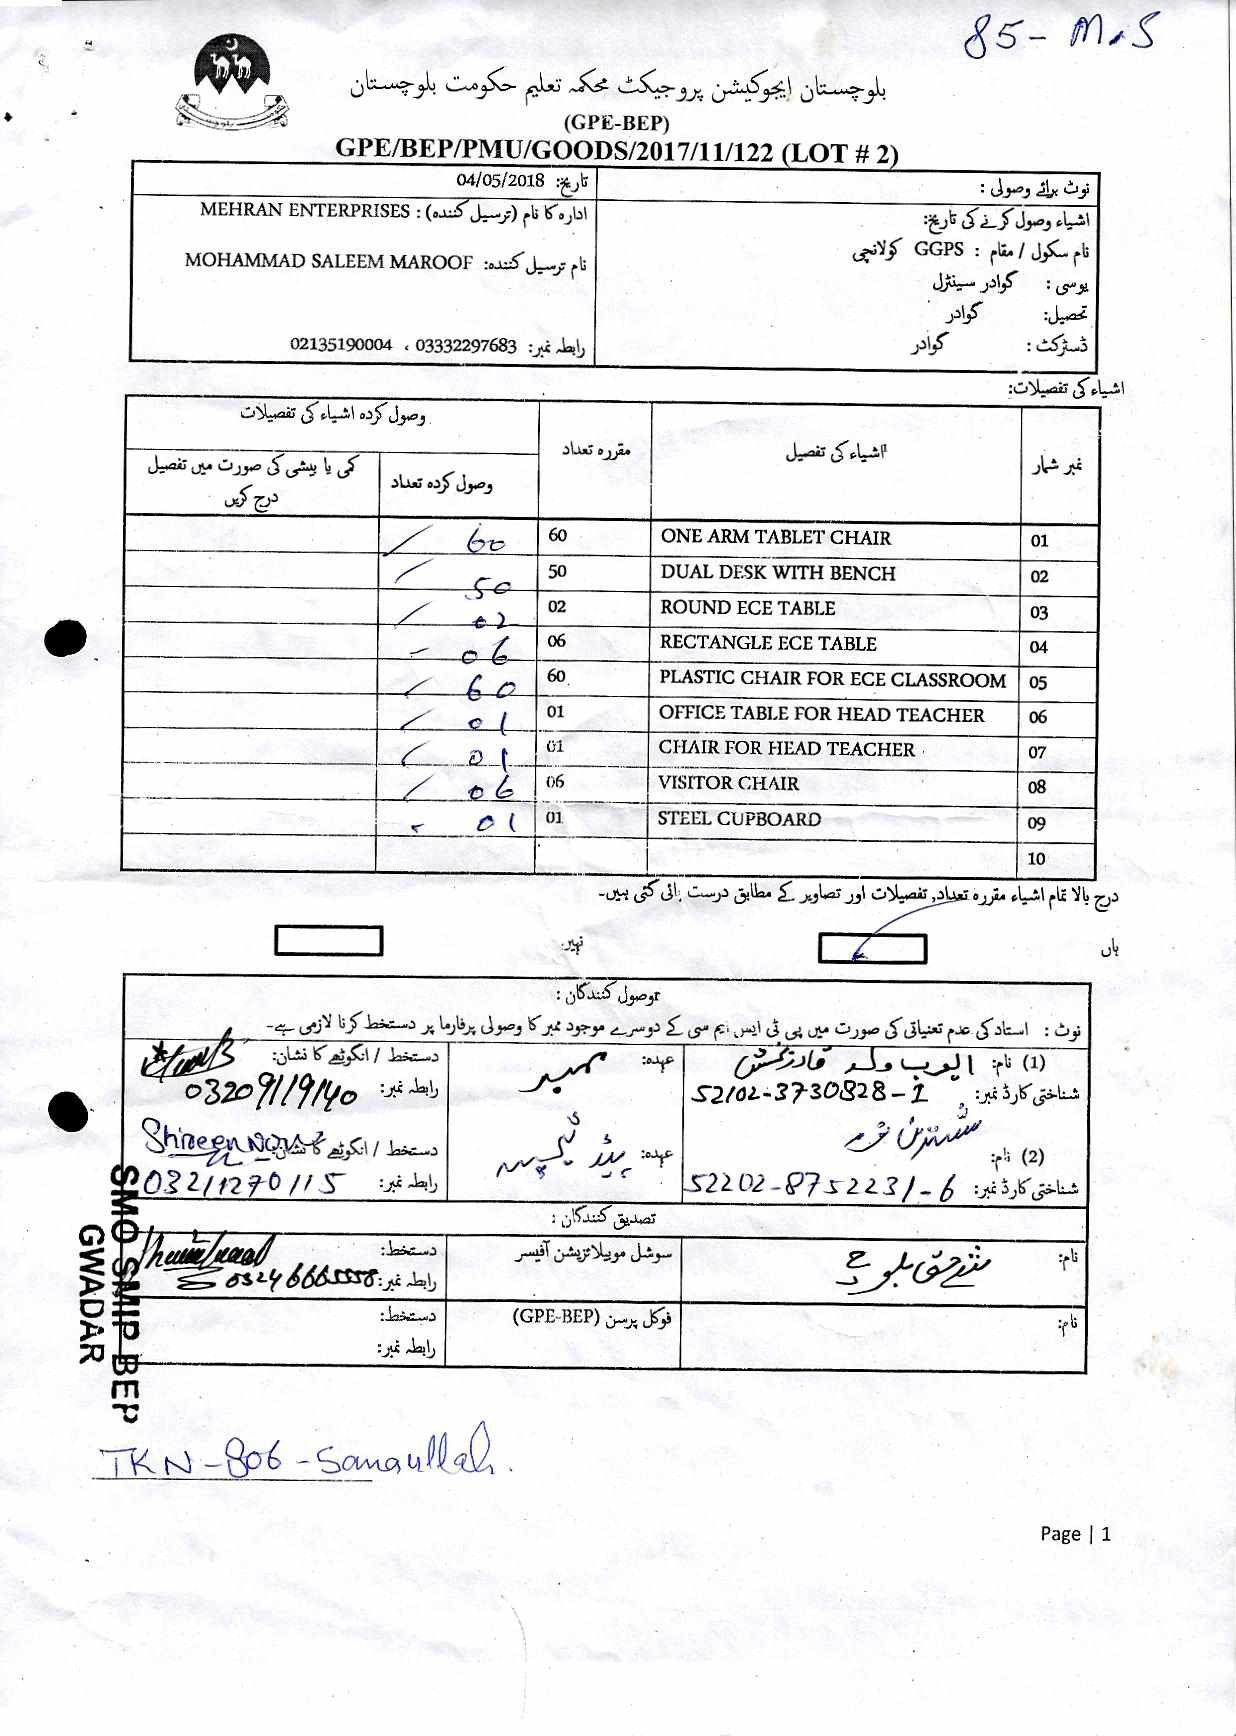 85- M.S
بلوچستان ایجوکیشن پروجیکٹ محکمہ تعلیم حکومت بلوچستان
(GPE-BEP)
GPE/BEP/PMU/GOODS/2017/11/122 (LOT # 2)
نوٹ برائے وصولی :
اشیاء وصول کرنے کی تاریخ:
نام سکول / مقام : GGPS کولانچی
یوسی : گوادر سینٹرل
تحصیل: گوادر
ڈسٹرکٹ : گوادر
تاریخ: 04/05/2018
ادارہ کا نام (ترسیل کنندہ) : MEHRAN ENTERPRISES
نام ترسیل کنندہ: MOHAMMAD SALEEM MAROOF
رابطہ نمبر: 03332297683 ، 02135190004
اشیاء کی تفصیلات:
نمبر شمار اشیاء کی تفصیل مقررہ تعداد وصول کردہ اشیاء کی تفصیلات
وصول کردہ تعداد کمی یا بیشی کی صورت میں تفصیل درج کریں
01 ONE ARM TABLET CHAIR 60 60
02 DUAL DESK WITH BENCH 50 50
03 ROUND ECE TABLE 02 02
04 RECTANGLE ECE TABLE 06 06
05 PLASTIC CHAIR FOR ECE CLASSROOM 60 60
06 OFFICE TABLE FOR HEAD TEACHER 01 01
07 CHAIR FOR HEAD TEACHER 01 01
08 VISITOR CHAIR 06 06
09 STEEL CUPBOARD 01 01
10
درج بالا تمام اشیاء مقررہ تعداد, تفصیلات اور تصاویر کے مطابق درست پائی گئی ہیں۔
ہاں نہیں
وصول کنندگان :
نوٹ : استاد کی عدم تعنیاتی کی صورت میں پی ٹی ایس ایم سی کے دوسرے موجود ممبر کا وصولی پرفارما پر دستخط کرنا لازمی ہے۔
(1) نام: ایوب ولد قادر بخش عہدہ: ممبر دستخط / انگوٹھے کا نشان:
شناختی کارڈ نمبر: 52102-3730828-1 رابطہ نمبر: 03209119140
(2) نام: عہدہ: ہیڈ ٹیچر دستخط / انگوٹھے کا نشان: Shireen
شناختی کارڈ نمبر: 52202-8752231-6 رابطہ نمبر: 03211270115
تصدیق کنندگان :
نام: بلوچ سوشل موبیلائزیشن آفیسر دستخط:
رابطہ نمبر: 03246665558
نام: فوکل پرسن (GPE-BEP) دستخط:
رابطہ نمبر:
SMO SMIP BEP
GWADAR
TKN-806-Sanaullah.
Page | 1